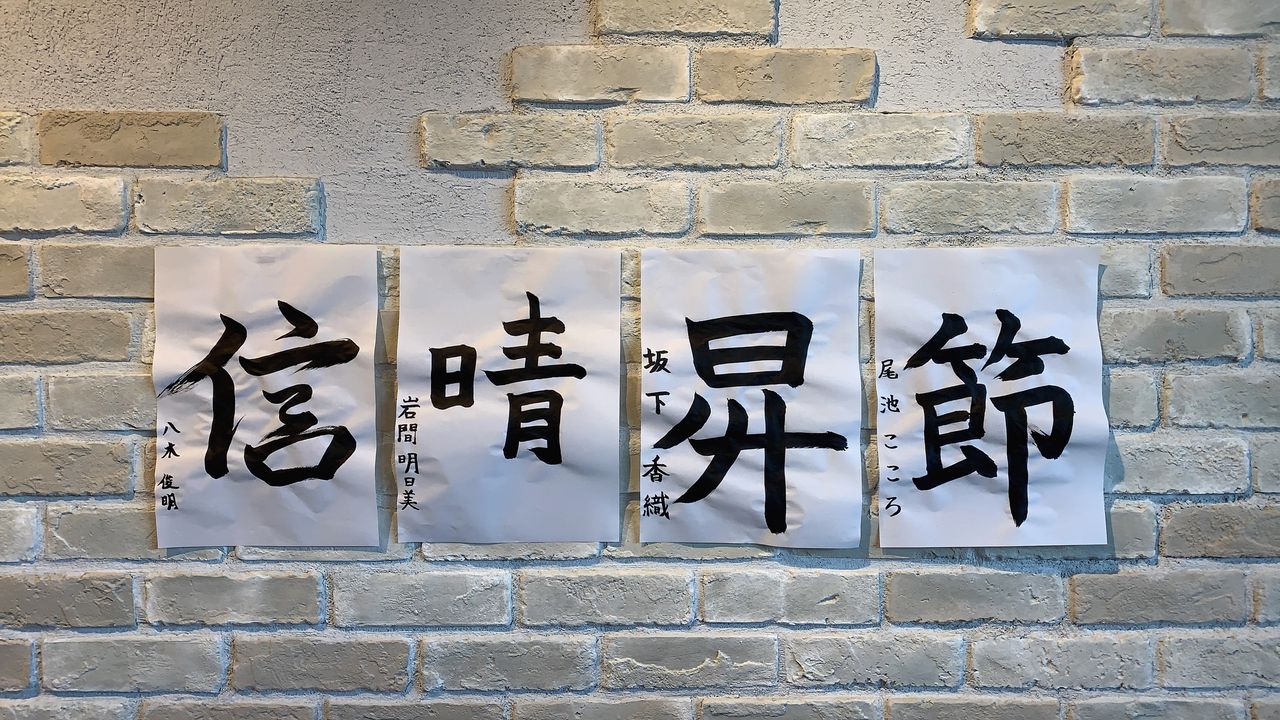 信
八木 俊明
晴
岩間 明日美
昇
坂下 香織
節
尾池 こころ